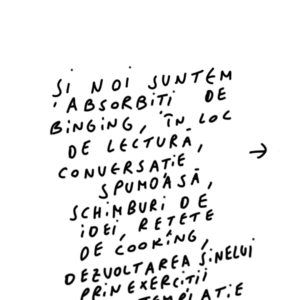 ȘI NOI SUNTEM
ABSORBIȚI DE
BINGING, ÎN LOC
DE LECTURĂ,
CONVERSAȚIE
SPUMOASĂ,
SCHIMBURI DE
IDEI, REȚETE
DE COOKING,
DEZVOLTAREA SINELUI
PRIN EXERCIȚII